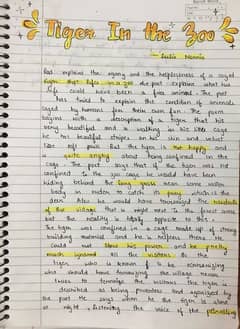 Tiger In the Zoo
- Leslie Norris
Poet explains the agony and the helplessness of a caged
tiger that lives in a zoo the poet explains what his
life could have been as a free animal. The poet
has tried to explain the condition of animals
caged by humans for their own fun. The poem
begins with a description of a tiger that is
very beautiful and is walking in his little cage
he has beautiful stripes on his skin and velvet
like soft paws. But the tiger is not happy and
quite angry about being confined in the
cage. The poet says that if the tiger was not
confined to the zoo cage he would have been
hiding behind the long grass near some water
body in order to catch its prey which is the
deer. Also he would have terrorised the residents
of the village that is might next to the forest area
but the reality is totally opposite to this.
The tiger was confined in a cage made up of strong
building material and he is helpless there. He
could not show his power and he pretty
much ignored all the visitors. So the
tiger who is known to be terrorising
who should have terrorising the village never
tries to terrorise the visitors. The tiger is
described as being powerless and agonised by
the poet. He says when the tiger is alone
at night, listening the voice of the patrolling